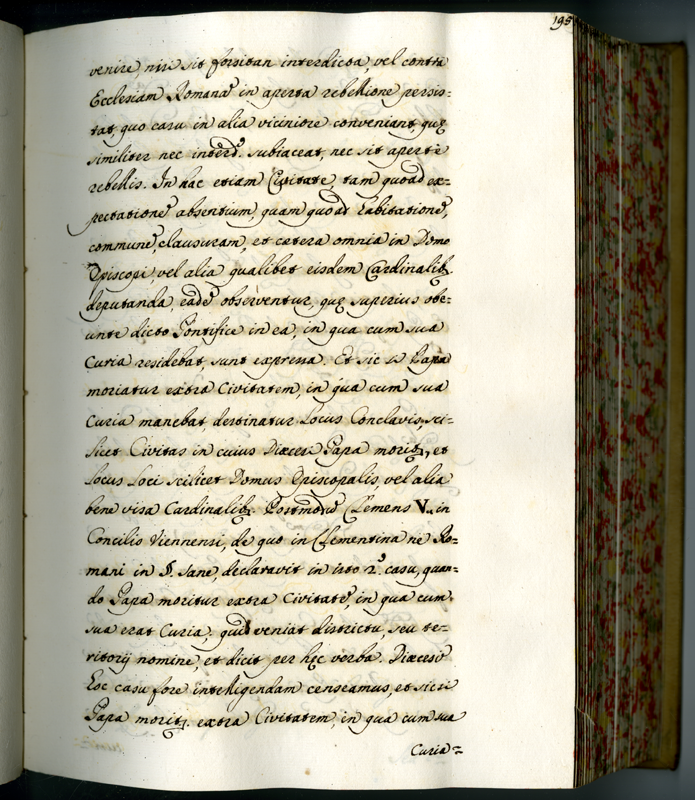 195
venire, nisi sit forsitan interdicta, vel contra
Ecclesiam Romanã in aperta rebellione persis=
tat, quo casu in alia viciniore conveniant, quę
similiter nec interd. subiaceat, nec sit apertè
rebellis. In hac etiam Civitate, tam quoad ex=
pectationẽ absentium quam quoad habitationẽ,
communẽ, clausuram, et cætera omnia in Domo
Episcopi, vel alia qualibet eisdem Cardinalib.
deputanda, eadẽ observentur, quę superius obe=
unte dicto Pontifice in ea, in qua cum sua
Curia residebat, sunt expressa. Et sic si Papa
moriatur extra Civitatem, in qua cum sua
Curia manebat, destinatur Locus Conclavis, sci=
licet Civitas in cuius Diæcesi Papa morit., et
Locus Loci scilicet Domus Episcopalis, vel alia
bene visa Cardinalib. Postmodũ Clemens V. in
Concilio Viennensi, de quo in Clementina ne Ro=
mani in §. sane, declaravit in isto 2.º casu, quan=
do Papa moritur extra Civitatẽ, in qua cum
sua erat Curia, quid veniat districtu, seu te=
ritorij nomine, et dicit per hęc verba. Diæcesis
hoc casu fore intelligendam censeamus, et sic si
Papa morit. extra Civitatem, in qua cum sua
Curia=